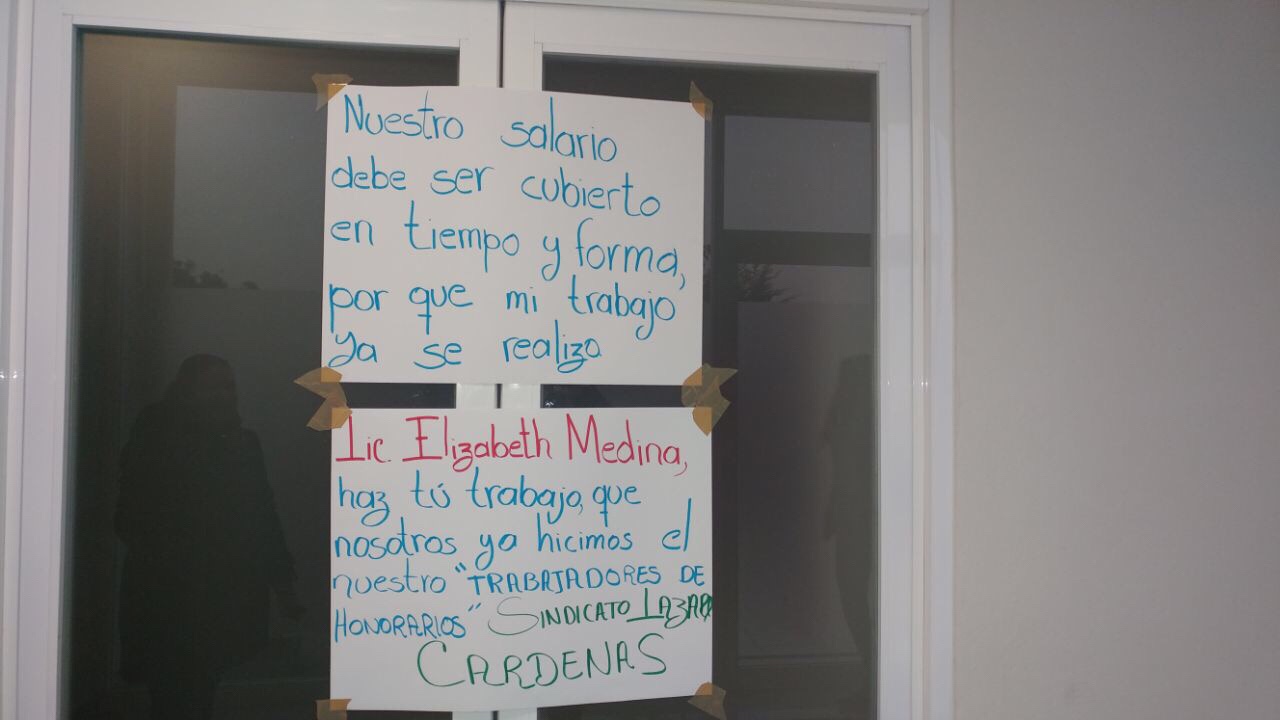 Nuestro salario
debe ser cubierto
en tiempo y forma,
por que mi trabajo
ya se realizo
Lic. Elizabeth Medina,
haz tú trabajo, que
nosotros ya hicimos el
nuestro "TRABAJADORES DE
HONORARIOS" SINDICATO LAZARO
CARDENAS